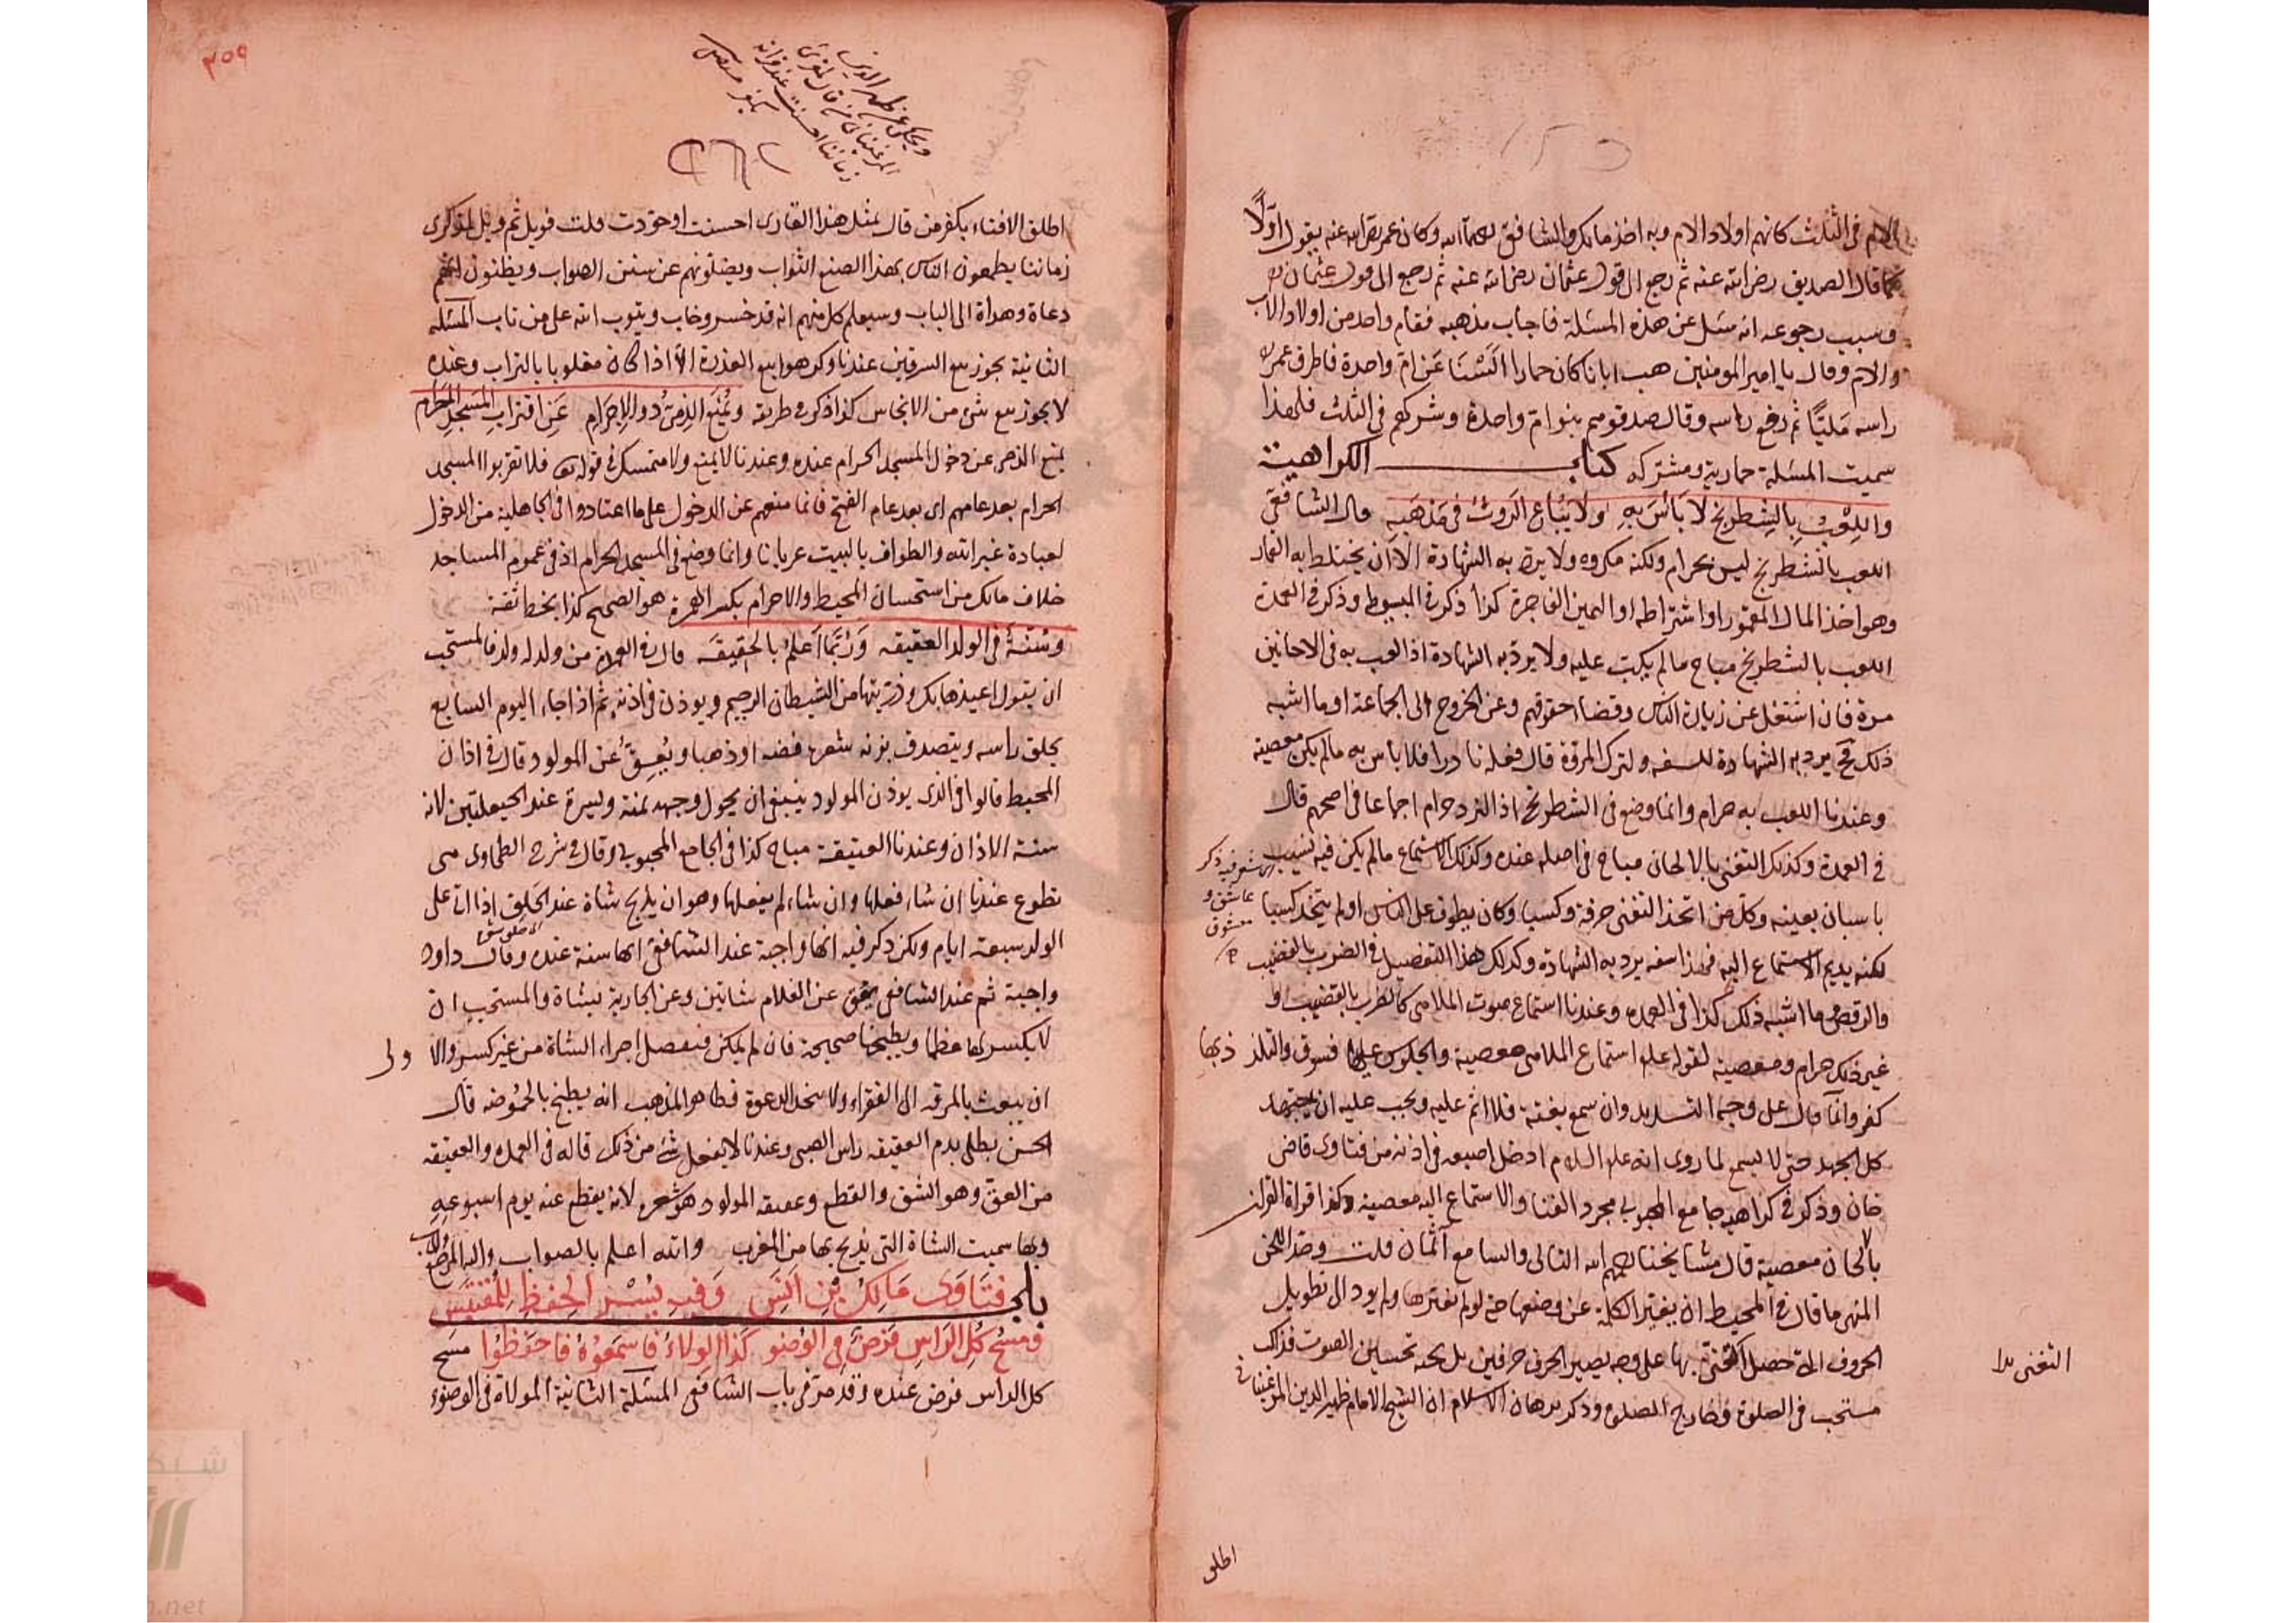 الام في الثلث كانهم اولاد الام وبه اخذ مالك والشافعي رحمهما الله وكان عمر رضي الله عنه يقول اولا
كما قال الصديق رضي الله عنه ثم رجع الى قول عثمان رضي الله عنه ثم رجع الى قول عثمان
وسبب رجوعه انه سئل عن هذه المسئلة فاجاب مذهبه فقام واحد من اولاد الاب
والام وقال يا امير المومنين هب ابانا كان حمارا السنا عن ام واحدة فاطرق عمر
راسه مليا ثم رفع راسه وقال صدقوا هم بنوا ام واحدة وشركهم في الثلث فلهذا
سميت المسئلة حمارية ومشتركة كتاب الكراهية
واللعب بالشطرنج لا باس به ولا يباع الروث في مذهبه قال الشافعي
اللعب بالشطرنج ليس بحرام ولكنه مكروه ولا يرد به الشهادة الا ان يختلط به القمار
وهو اخذ المال المقمور او اشتراطه او اليمين الفاجرة كذا ذكر في المبسوط وذكر في العمدة
اللعب بالشطرنج مباح ما لم يكبت عليه ولا يرد به الشهادة اذا لعب به في الاحايين
مرة فان اشتغل عن زيارة الناس وقضاء حقوقهم وعن الخروج الى الجماعة او ما اشبه
ذلك يرد به الشهادة للسفه ولترك المروة قال وفعله نادرا فلا باس به ما لم يكن معصية
وعندنا اللعب به حرام وانما وضع في الشطرنج اذ النرد حرام اجماعا في اصحهم قال
في العمدة وكذلك التغني بالالحان مباح في اصله عنده وكذلك الاستماع ما لم يكن فيه نسيب
باسبان بعينه وكل من اتخذ التغني حرفة وكسبا وكان يطوف على الناس او لم يتخذ كسبا
لكنه يديم الاستماع اليه فهذا سفه يرد به الشهادة وكذلك هذا التفصيل في الضرب بالقضيب
والرقص وما اشبه ذلك كذا في العمدة وعندنا استماع صوت الملاهي كالضرب بالقضيب و
غير ذلك حرام ومعصية لقوله علم استماع الملاهي معصية والجلوس عليها فسوق والتلذذ بها
كفر وانما قال على وجه التشديد وان سمع بغتة فلا اثم عليه ويجب عليه ان يجتهد
كل الجهد حتى لا يسمع لما روي انه عليه السلام ادخل اصبعه في اذنه من فتاوى قاضي
خان وذكر في كراهية جامع المحبوبي مجرد الغنا والاستماع اليه معصية وكذا قراة القران
بالالحان معصية قال مشايخنا رحمهم الله التالي والسامع آثمان قلت وحد اللحن
المنهي ما قال في المحيط ان يغير الكلمة عن وضعها حتى لو لم يغيرها ولم يود الى تطويل
الحروف التي حصل التغني بها على وجه يصير الحرف حرفين بل بحه تحسين الصوت فذلك
مستحب في الصلوة وخارج الصلوة وذكر برهان الاسلام ان الشيخ الامام ظهير الدين المرغيناني
شعر فيه ذكر
عاشق و
معشوق
التغني بدا
اطلق
٣٥٩
ويحكى عن ظهير الدين
المرغيناني من قال لمقرئ
زماننا احسنت عند قراته
يكفر
اطلق الافتاء بكفر من قال لمثل هذا القارى احسنت او جودت قلت فويل ثم ويل لمذكرى
زماننا يطمعون الناس بهذا الصنع الثواب ويضلونهم عن سنن الصواب ويظنون انهم
دعاة وهداة الى الباب وسيعلم كل منهم انه قد خسر وخاب ويتوب الله على من تاب المسئلة
الثانية يجوز بيع السرقين عندنا وكرهوا بيع العذرة الا اذا كان مغلوبا بالتراب وعنده
لا يجوز بيع شى من الانجاس كذا ذكر في طريقه ويمنع الذمي ذو الاجرام عن اقتراب المسجد الحرام
يمنع الذمي عن دخول المسجد الحرام عنده وعندنا لا يمنع ولا متمسك في قوله تعالى فلا تقربوا المسجد
الحرام بعد عامهم اى بعد عام الفتح فانما منعهم عن الدخول على ما اعتادوا في الجاهلية من الدخول
لعبادة غير الله والطواف بالبيت عريانا وانما وضع في المسجد الحرام اذ في عموم المساجد
خلاف مالك من استحسان المحيط والاجرام بكسر الهمزة هو الصحيح كذا بخط ثقة
وسنة في الولد العقيقه وربنا اعلم بالحقيقه قال في العمدة من ولد له ولد فالمستحب
ان يقول اعيذها بك وذريتها من الشيطان الرجيم ويوذن في اذنه ثم اذا جاء اليوم السابع
يحلق راسه ويتصدق بزنة شعره فضه او ذهبا ويعق عن المولود وقال في اذان
المحيط قالوا في الذى يوذن المولود ينبغي ان يحول وجهه يمنة ويسرة عند الحيعلتين لانه
سنة الاذان وعندنا العقيقة مباح كذا في الجامع المحبوبي وقال في شرح الطحاوى هى
تطوع عندنا ان شاء فعلها وان شاء لم يفعلها وهو ان يذبح شاة عند الحلق اذا اتى على
الولد سبعة ايام ولكن ذكر فيه انها واجبة عند الشافعي انها سنة عنده وقال داود
واجبة ثم عند الشافعي يعق عن الغلام شاتين وعن الجارية بشاة والمستحب ان
لا يكسر لها عظما ويطبخها صحيحة فان لم يمكن فيفصل اجزاء الشاة من غير كسر والاولى
ان يبعث بالمرقه الى الفقراء ولا يتخذ للدعوة فظاهر المذهب انه يطبخ بالحموضه قال
الحسن يطلى بدم العقيقه راس الصبي وعندنا لا يفعل شئ من ذلك قاله في العمده والعقيقه
من العق وهو الشق والقطع وعقيقه المولود هو شعره لانه يقطع عنه يوم اسبوعه
وبها سميت الشاة التي يذبح بها من المغرب والله اعلم بالصواب واليه المرجع والمآب
باب فتاوى مالك بن انس وفيه يسر الحفظ للمقتبس
ومسح كل الراس فرض في الوضو كذا الولاء فاسمعوه فاحفظوا مسح
كل الراس فرض عنده وقد مر في باب الشافعي المسئلة الثانية الموالاة في الوضوء